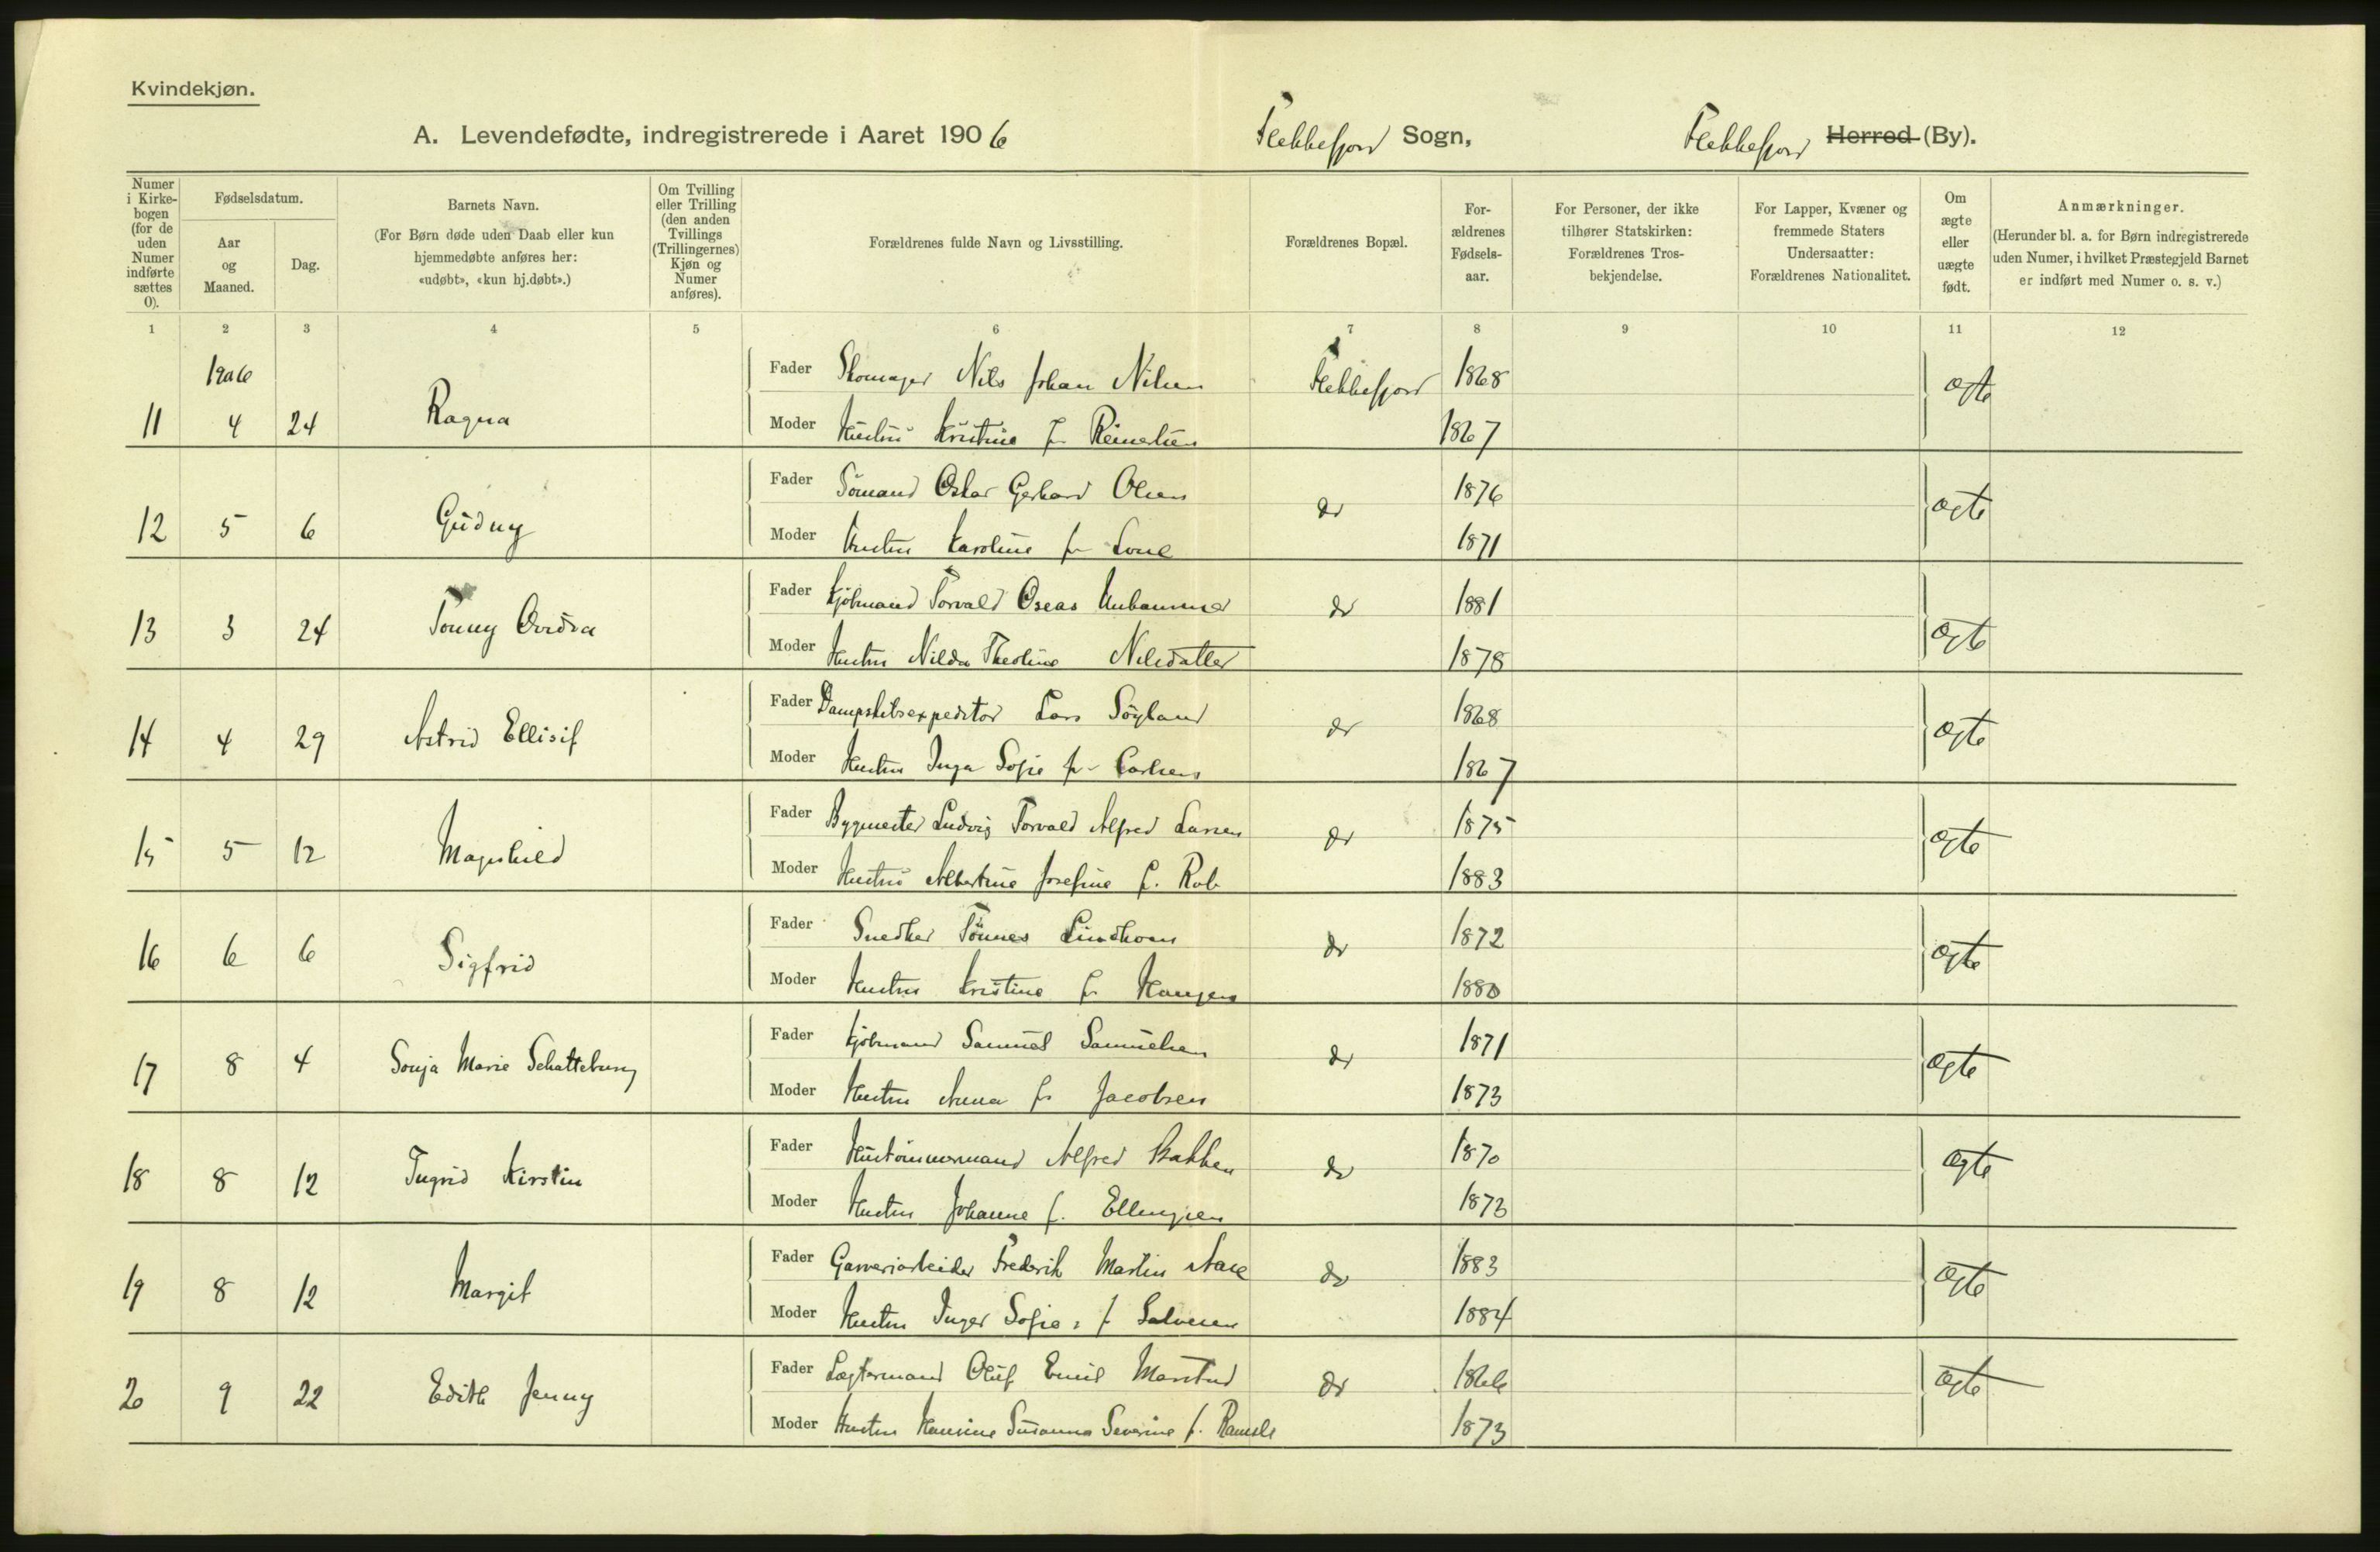 Kvindekjøn.
A. Levendefødte, indregistrerede i Aaret 1906 Flekkefjord Sogn, Flekkefjord Herred (By).
Numer i Kirkebogen (for de uden Numer indførte sættes 0).
Fødselsdatum.
Aar og Maaned.
Dag.
Barnets Navn.
(For Børn døde uden Daab eller kun hjemmedøbte anføres her: «udøbt», «kun hj.døbt».)
Om Tvilling eller Trilling (den anden Tvillings (Trillingernes) Kjøn og Numer anføres).
Forældrenes fulde Navn og Livsstilling.
Forældrenes Bopæl.
Forældrenes Fødselsaar.
For Personer, der ikke tilhører Statskirken: Forældrenes Trosbekjendelse.
For Lapper, Kvæner og fremmede Staters Undersaatter: Forældrenes Nationalitet.
Om ægte eller uægte født.
Anmærkninger.
(Herunder bl. a. for Børn indregistrerede uden Numer, i hvilket Præstegjeld Barnet er indført med Numer o. s. v.)
1 2 3 4 5 6 7 8 9 10 11 12
1906
11 4 24 Ragna Fader Skomager Nils Johan Nilsen Flekkefjord 1868 ægte
Moder Hustru Kristine f. Reinertsen 1867
12 5 6 Gudny Fader Sømand Oskar Gerhard Olsen do 1876 ægte
Moder Hustru Karoline f. 1871
13 3 24 Tonny Fader Kjøbmand Torvald Oseas do 1881 ægte
Moder Hustru Nilda Theoline Nilsdatter 1878
14 4 29 Astrid Ellisif Fader Dampskibsexpeditør Lars Søyland do 1868 ægte
Moder Hustru Inga Sofie f. Carlsen 1867
15 5 12 Magnhild Fader Bygmester Ludvig Torvald Alfred Larsen do 1875 ægte
Moder Hustru Albertine Josefine f. 1883
16 6 6 Sigfrid Fader Snedker Tønnes do 1872 ægte
Moder Hustru Kristine f. Hansen 1880
17 8 4 Sonja Marie Schattebury Fader Kjøbmand Samuel Samuelsen do 1871 ægte
Moder Hustru Anna f. Jacobsen 1873
18 8 12 Ingrid Kirstin Fader Hustømmermand Alfred Bakken do 1870 ægte
Moder Hustru Johanne f. Ellingsen 1873
19 8 12 Margit Fader Garveriarbeider Frederik Martin Aase do 1883 ægte
Moder Hustru Inger Sofie f. Salvesen 1884
20 9 22 Edith Jenny Fader Oluf Emil do 1866 ægte
Moder Hustru Hansine Susanna Severine f. 1873